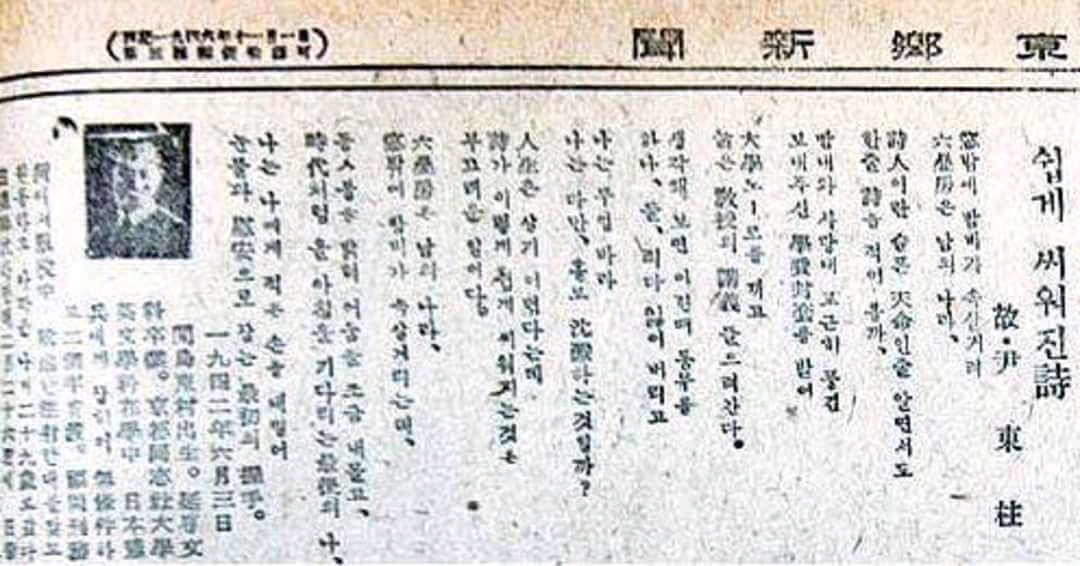 東鄕新聞
一九四六年十一月一日
쉽게 씨워진詩
故·尹東柱
窓밖에 밤비가 속살거려
六疊房은 남의 나라,
詩人이란 슬픈 天命인줄 알면서도
한줄 詩를 적어 볼까,
땀내와 사랑내 포근히 품긴
보내주신 學費封套를 받어
大學노ー트를 끼고
늙은 敎授의 講義 들으러간다.
생각해 보면 어린때 동무들
하나, 둘, 죄다 잃어 버리고
나는 무얼 바라
나는 다만, 홀로 沈澱하는것일까?
人生은 살기 어렵다는데
詩가 이렇게 쉽게 씨워지는것은
부끄러운 일이다.
六疊房은 남의 나라,
窓밖에 밤비가 속살거리는데,
등불을 밝혀 어둠을 조금 내몰고,
時代처럼 올 아침을 기다리는 最後의 나,
나는 나에게 적은 손을 내밀어
눈물과 慰安으로 잡는 最初의 握手。
一九四二年六月三日
間島東村出生。延專文
科卒業。京都同志社大學
英文學科在學中 日本